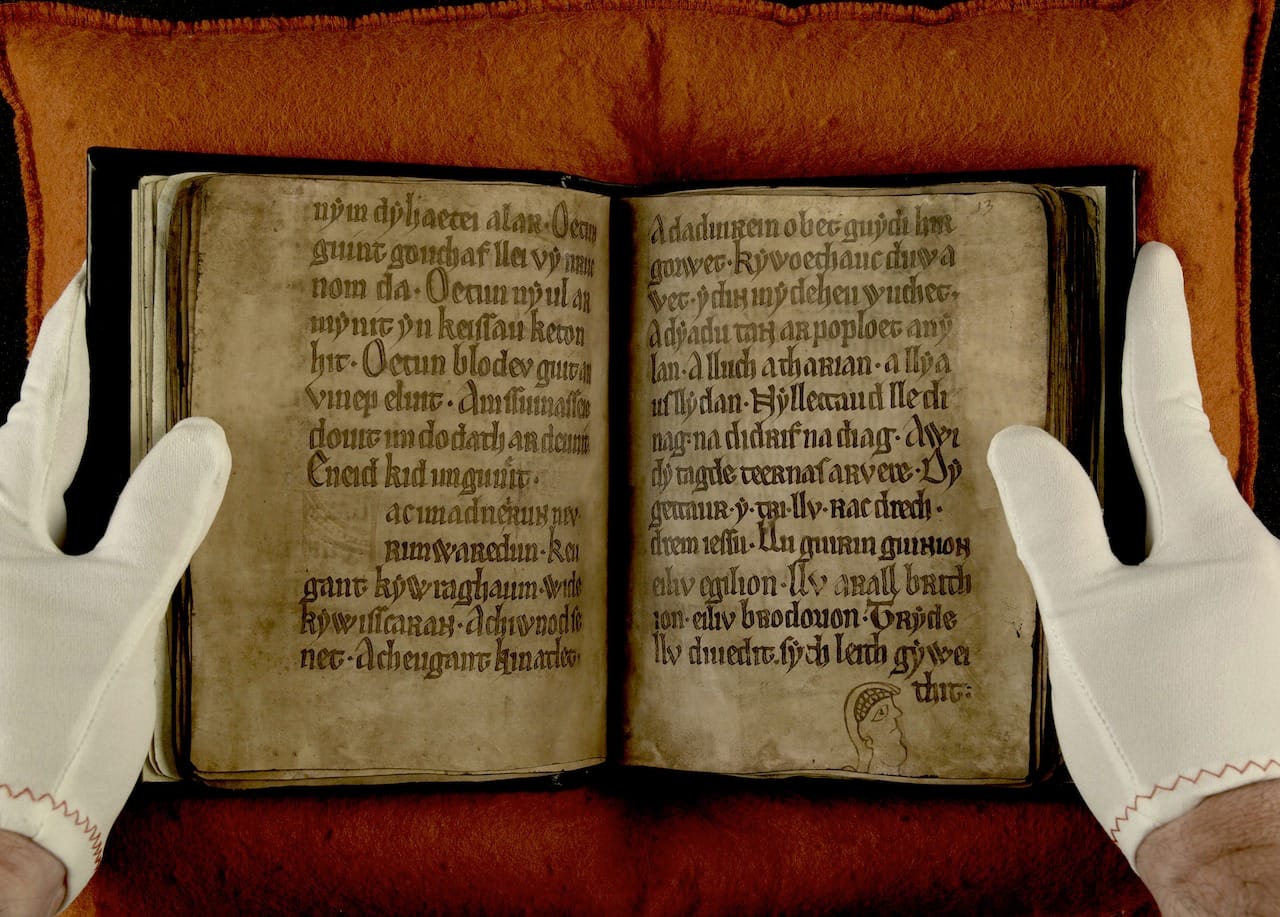 nẏm dẏhaetei alar. Oetun
guint gonchaf llei vẏ
nom da. Oetun nẏul ar
mẏnit ẏn keissau keton
hit. Oetun blodev guit ar
vinep eluit. Amssuinassei
douit un do dath ar deunit
Eneid kid im gunit.
acimadneirun nev
run waredun. Keu
gant kẏwraghaun. wide
kẏwisscaran. Achivnod se
net. Acheugant kinatlet.
13
Adaduirein o bet guẏdi hir
gorwet. Kẏvoethauc duw a
vet. ẏ dir mẏ deheu wuchet.
Adẏadu tan ar poploet anẏ
lan. Alluch atharian. allẏa
us llẏdan. Nẏllettaud lle di
nag. na didrif na diag. Awi
dẏ tagde teernas arvere. Dẏ
gettaur. ẏ. tri. llv. rac drech.
drem iessu. Llu guirin guinion
eiliv egilion. llv arall brith
ion. eiliv brodorion. Trẏde
llv diuedit. sẏch leith gẏwei
thit: